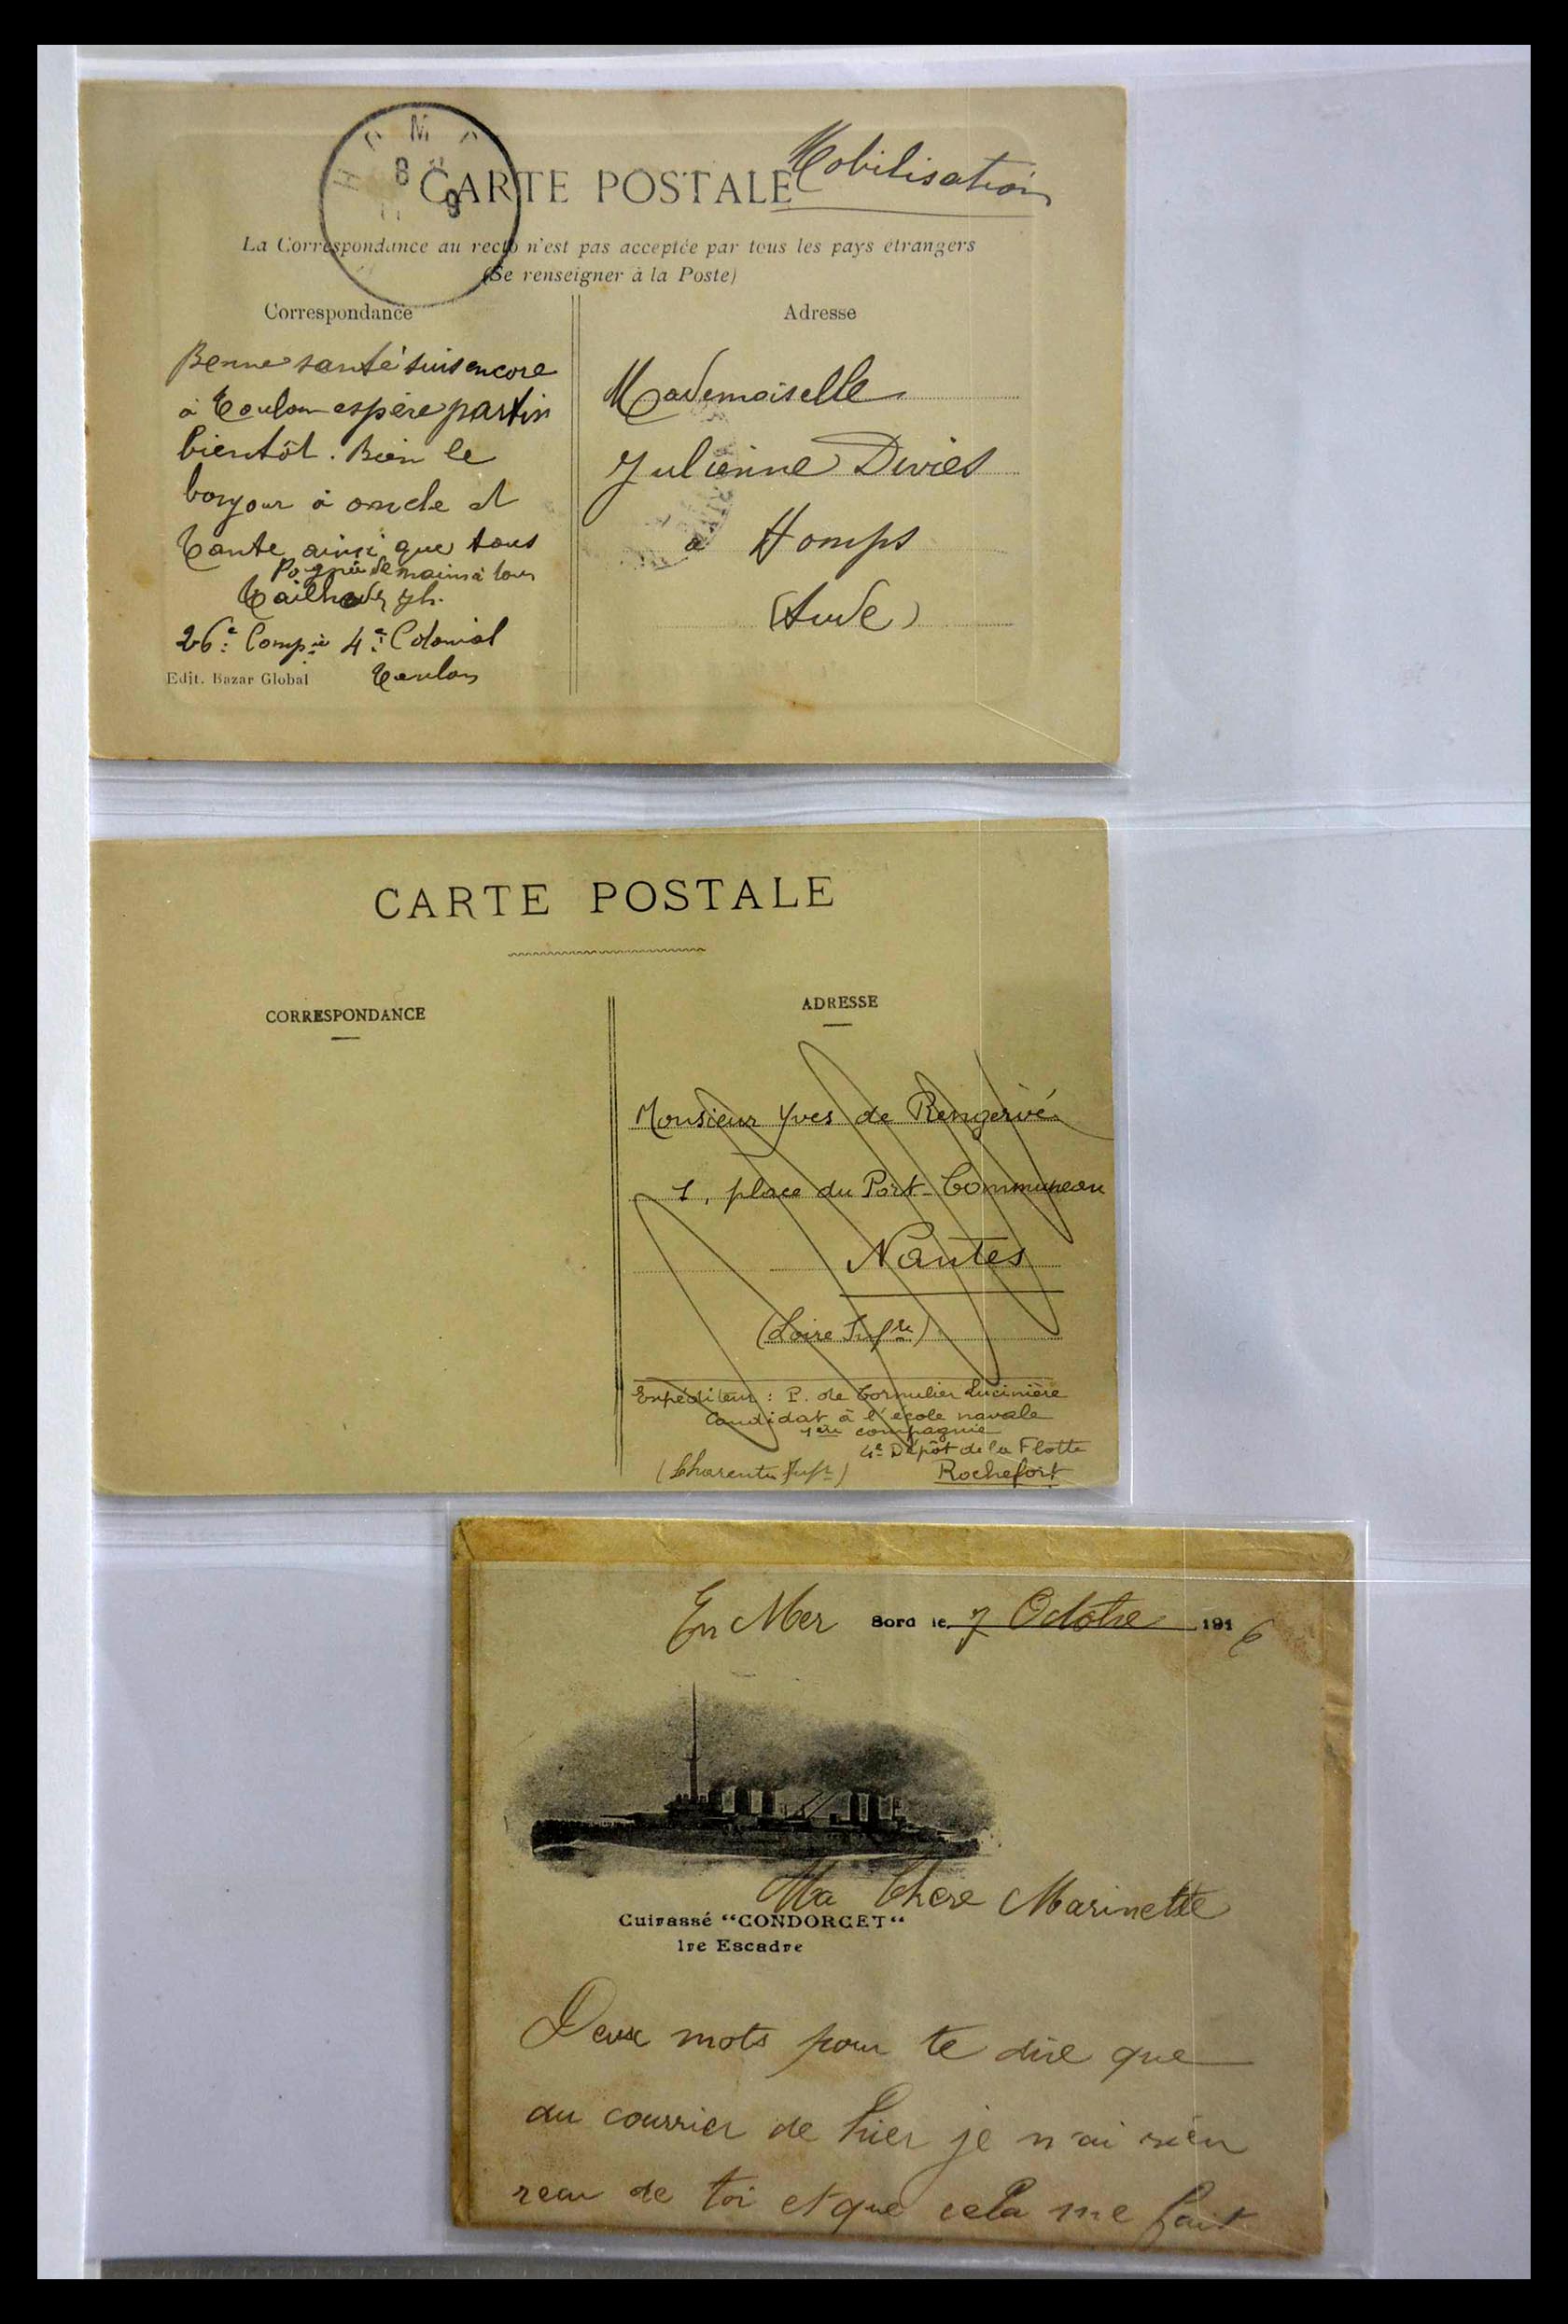 CARTE POSTALE
Mobilisation
La Correspondance au recto n'est pas acceptée par tous les pays étrangers
(Se renseigner à la Poste)
Correspondance
Bonne santé suis encore
à Toulon espère partir
bientôt. Bien le
bonjour à oncle et
Tante ainsi que tous
Poignée de mains à tous
26e Compie 4e Colonial
Toulon
Edit. Bazar Global
Adresse
Mademoiselle
Julienne Diviès
à Homps
(Aude)
CARTE POSTALE
CORRESPONDANCE
ADRESSE
Monsieur Yves de Rengervé
1, place du Port-Communeau
Nantes
(Loire Infre)
Expéditeur : P. de Cornulier Lucinière
Candidat à l'école navale
1ère compagnie
4e Dépôt de la Flotte
(Charente Infre) Rochefort
En Mer Bord le 7 Octobre 1916
Ma Chere Marinette
Cuirassé “CONDORCET“
1re Escadre
Deux mots pour te dire que
au courrier de hier je n'ai rien
recu de toi et que cela me fait